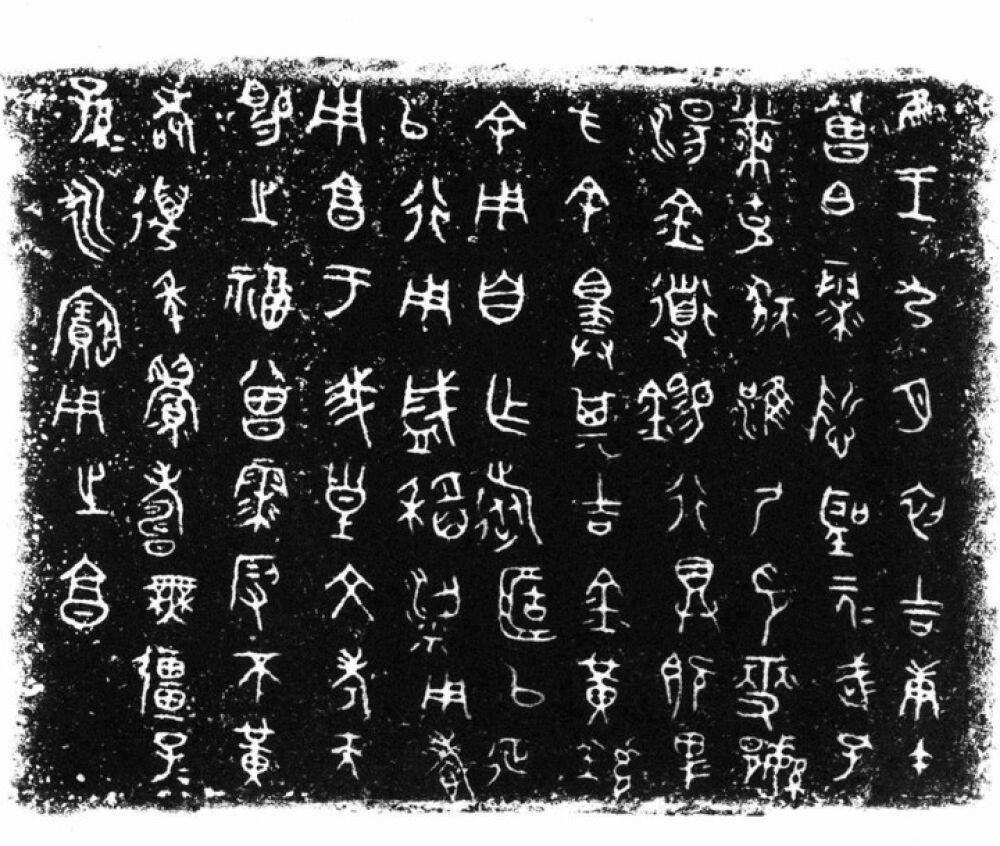 隹王九月初吉庚午
曾白霥哲聖元=武=孔
黹克狄淮尸印燮繁
湯金道錫行具既卑
方余擇其吉金黃鑪
余用自乍旅𠤳㠯征
㠯行用盛稻粱用孝
用享于我皇文考天
賜之福曾霥叚不黃
耇邁年眉壽無疆子=
孫=永寶用之享